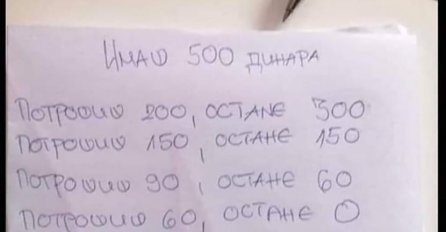 Имаш 500 динара
Потрошиш 200, остане 300
Потрошиш 150, остане 150
Потрошиш 90, остане 60
Потрошиш 60, остане 0